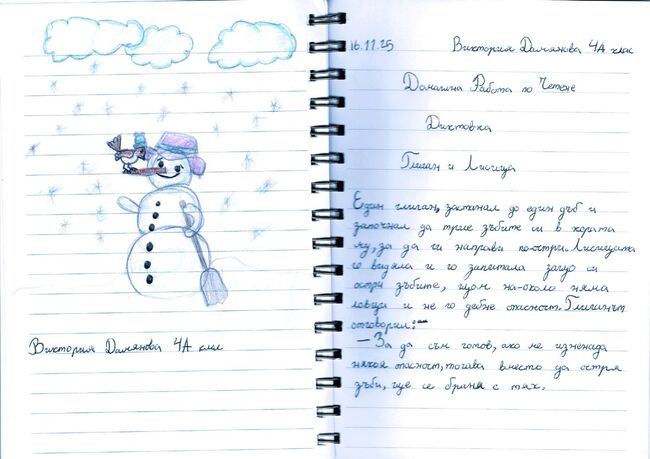 Виктория Дамянова 4А клас
16.11.25 Виктория Дамянова 4А клас
Домашна Работа по Четене
Диктовка
Глиган и Лисица
Един глиган, застанал до един дъб и
започнал да трие зъбите си в кората
му, за да ги направи по-остри. Лисицата
го видяла и го запитала защо си
остри зъбите, щом на-около няма
ловци и не го дебне опасност. Глиганът
отговорил:-
– За да съм готов, ако ме изненада
някоя опасност, тогава вместо да остря
зъби, ще се браня с тях.